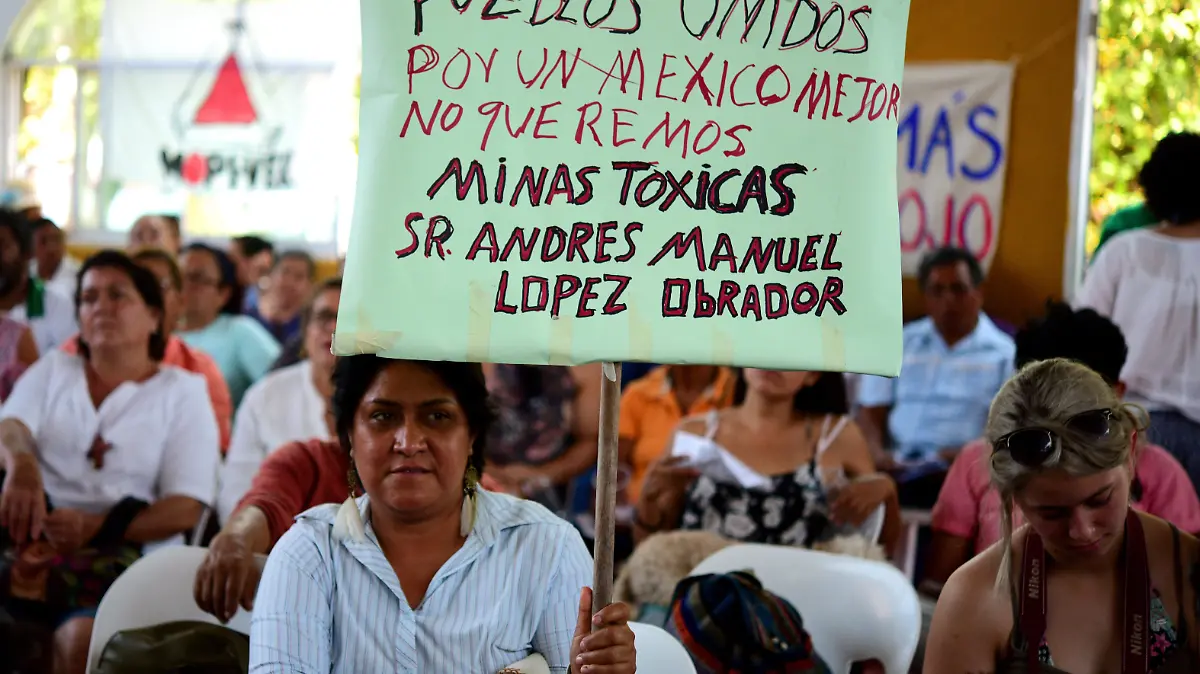 PUEBLOS UNIDOS
POR UN-MEXICO MEJOR
NO QUEREMOS
MINAS TOXICAS
SR. ANDRES MANUEL
LOPEZ OBRADOR
MÁS
ROJO
Nikon
Nikon